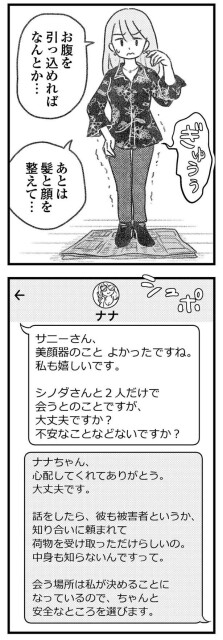 お腹を
引っ込めれば
なんとか…
ぎゅうぅ
あとは
髪と顔を
整えて…
←
ナナ
シュポ
サニーさん、
美顔器のこと よかったですね。
私も嬉しいです。
シノダさんと2人だけで
会うとのことですが、
大丈夫ですか？
不安なことなどないですか？
ナナちゃん、
心配してくれてありがとう。
大丈夫です。
話をしたら、彼も被害者というか、
知り合いに頼まれて
荷物を受け取っただけらしいの。
中身も知らないんですって。
会う場所は私が決めることに
なっているので、ちゃんと
安全なところを選びます。